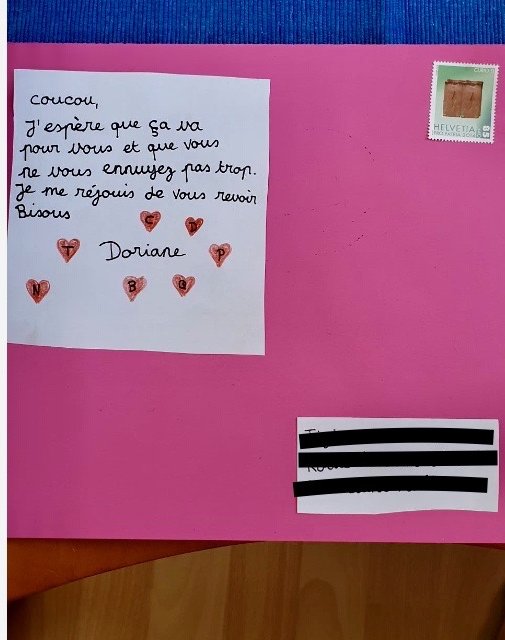 coucou,
J'espère que ça va
pour vous et que vous
ne vous ennuyez pas trop.
Je me réjouis de vous revoir
Bisous
C D
T Doriane P
N B Q
HELVETIA 85